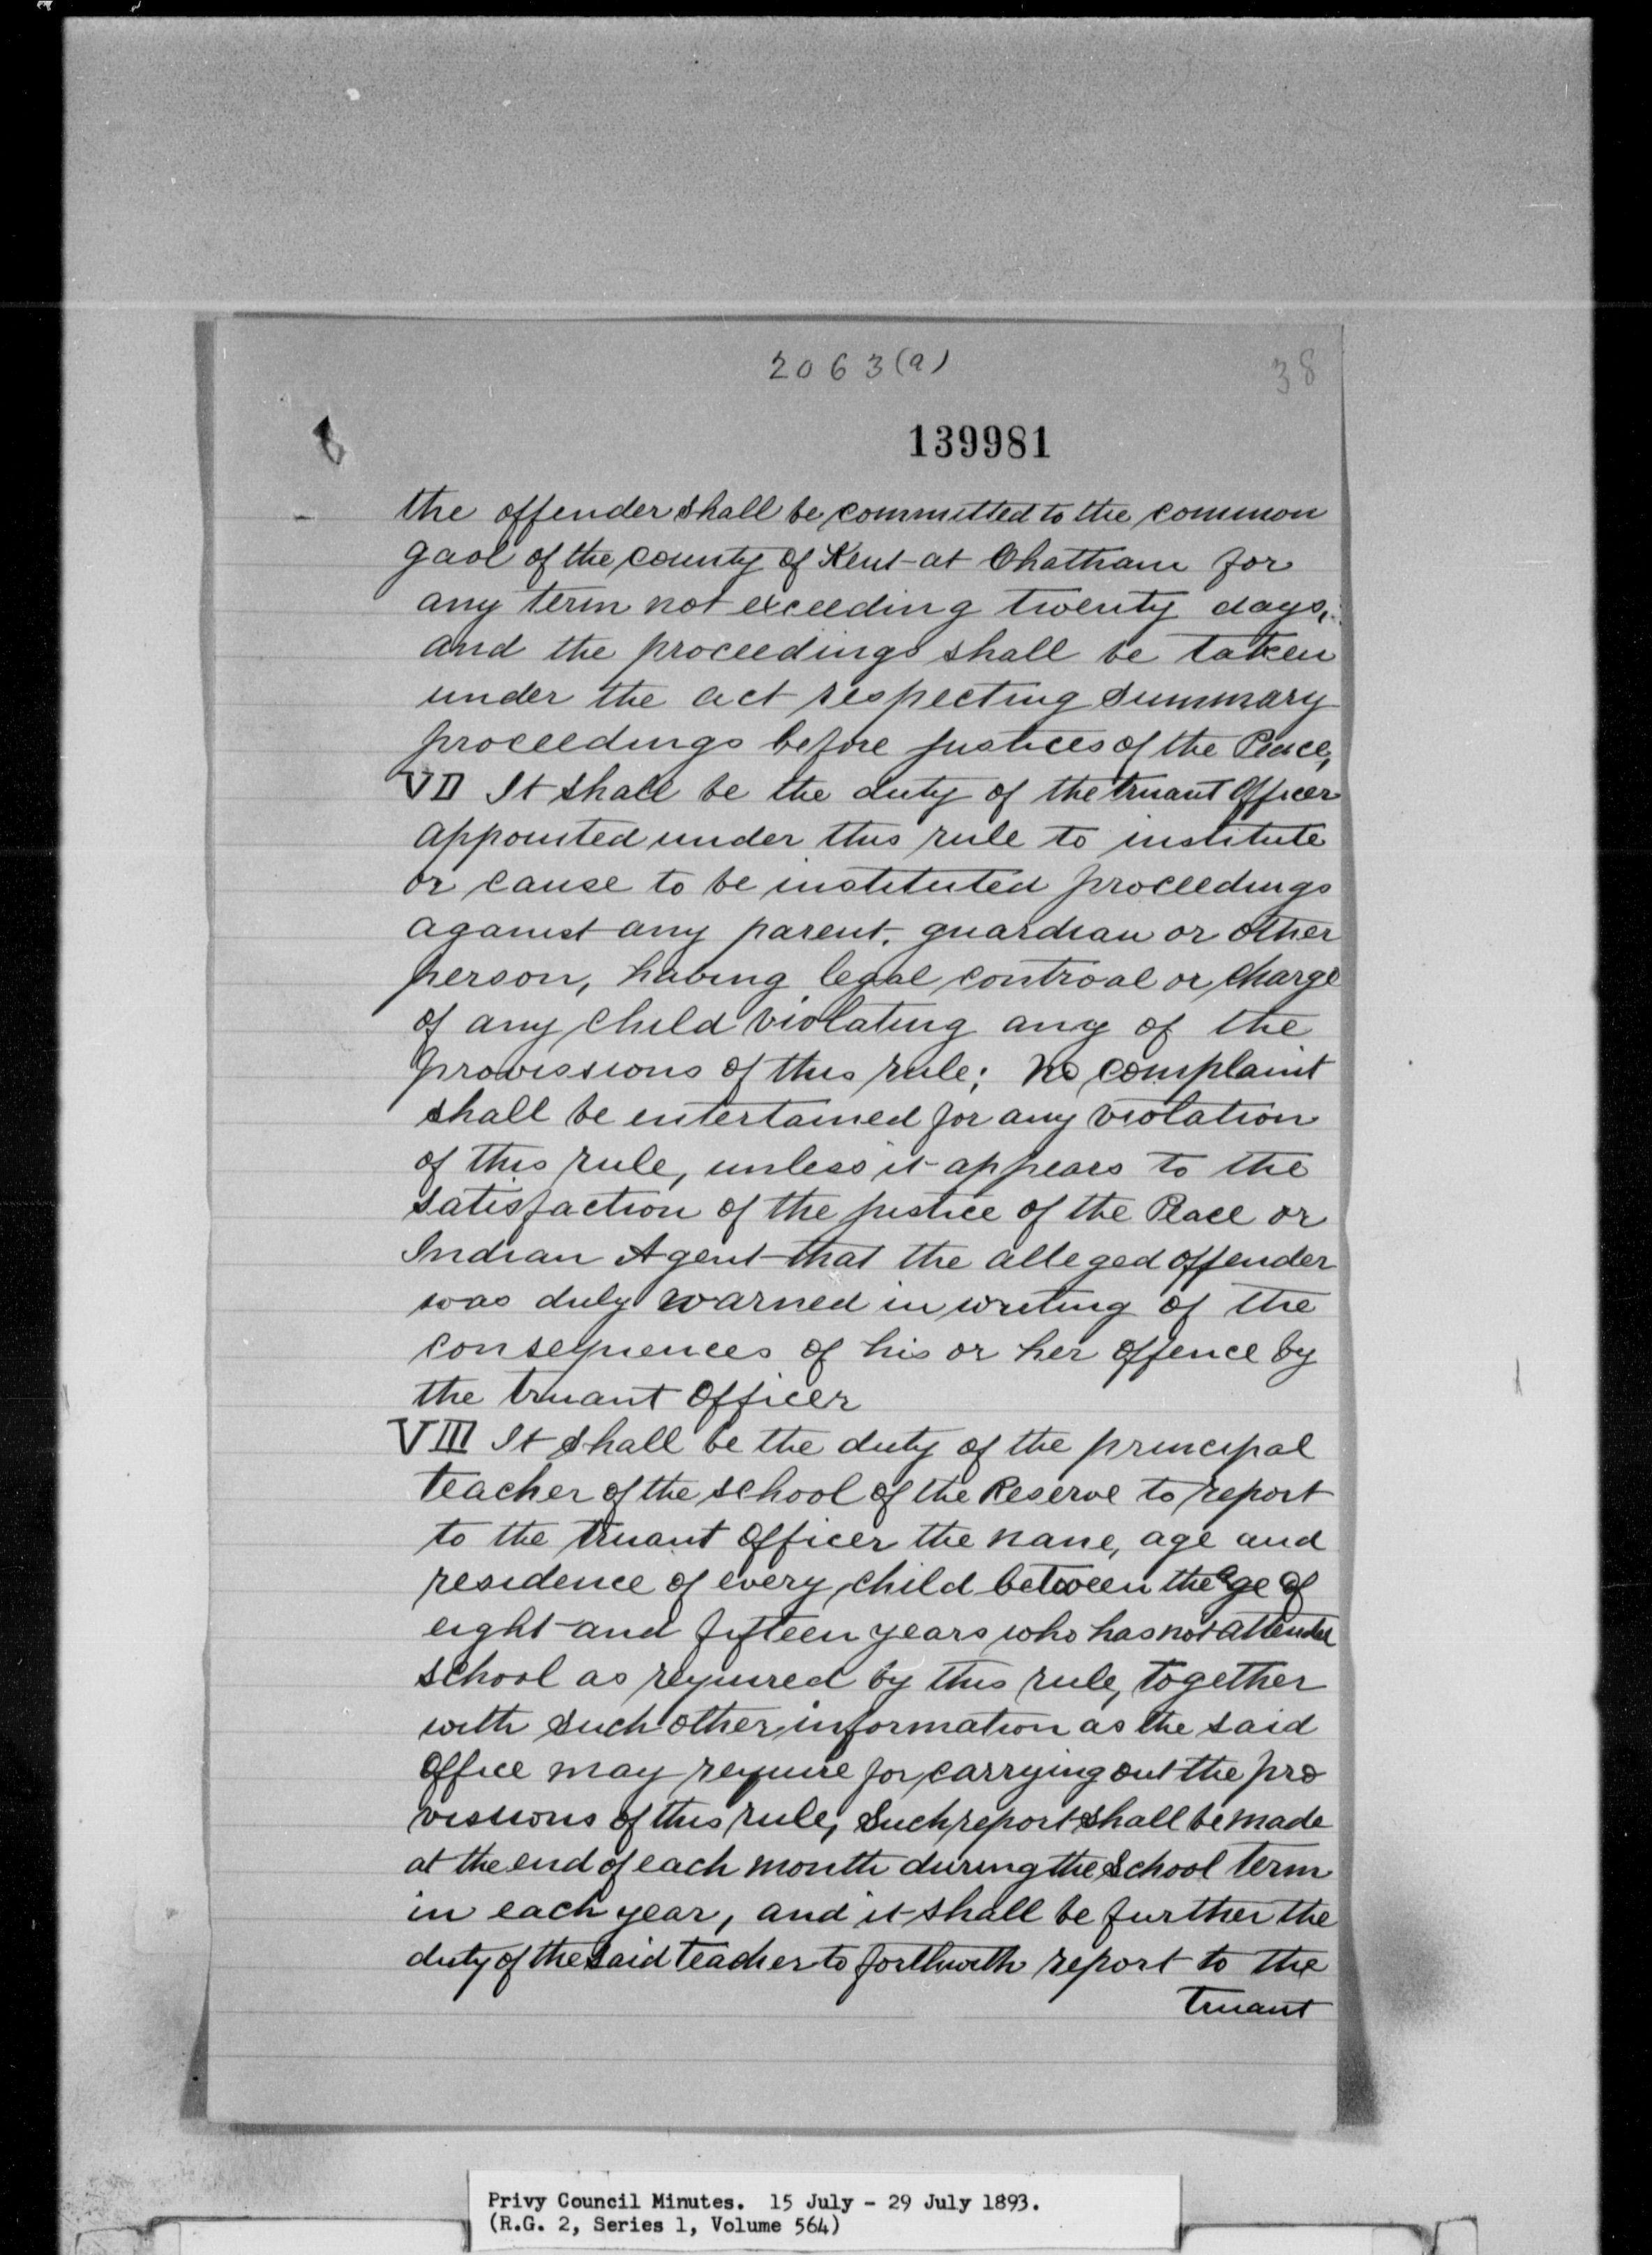 2063(a)
38
139981
the offender shall be committed to the common
gaol of the county of Kent at Chatham for
any term not exceeding twenty days,
and the proceedings shall be taken
under the act respecting summary
proceedings before justices of the Peace,
VII It shall be the duty of the truant Officer
appointed under this rule to institute
or cause to be instituted proceedings
against any parent, guardian or other
person, having legal controal or charge
of any child violating any of the
provissions of this rule; no complaint
shall be entertained for any violation
of this rule, unless it appears to the
satisfaction of the justice of the Peace or
Indian Agent that the alleged offender
was duly warned in writing of the
consequences of his or her offence by
the truant Officer
VIII It shall be the duty of the principal
teacher of the school of the Reserve to report
to the truant Officer the name, age and
residence of every child between the age of
eight and fifteen years who has not attended
school as required by this rule, together
with such other information as the said
Office may require for carrying out the pro
vissions of this rule, such report shall be made
at the end of each month during the School term
in each year, and it shall be further the
duty of the said teacher to forthwith report to the
truant
Privy Council Minutes. 15 July - 29 July 1893.
(R.G. 2, Series 1, Volume 564)